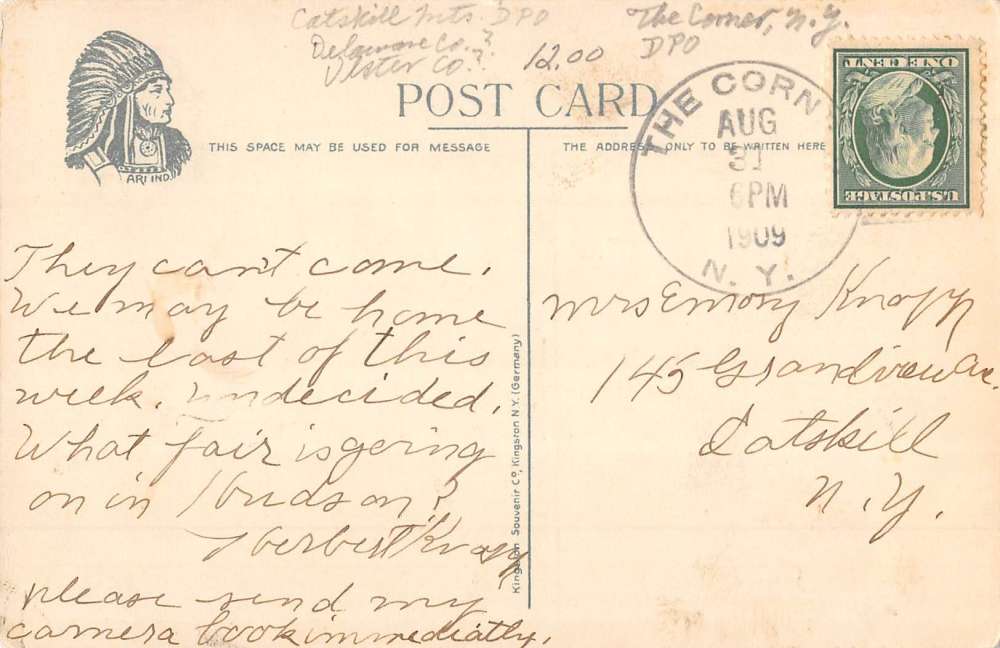 Catskill Mts. DPO
Delaware Co.?
Ulster Co.?
12.00
The Corner, N.Y.
DPO
POST CARD
THIS SPACE MAY BE USED FOR MESSAGE
THE ADDRESS ONLY TO BE WRITTEN HERE
ARI IND.
THE CORN
AUG
31
6PM
1909
N. Y.
U.S. POSTAGE
ONE CENT
They can't come.
We may be home
the last of this
week. undecided.
What fair is going
on in Hudson?
Herbert Knapp
please send my
camera book immediatly.
Mrs Emory Knapp
145 Grandview Av.
Catskill
N.Y.
Kingston Souvenir Co, Kingston N.Y. (Germany)